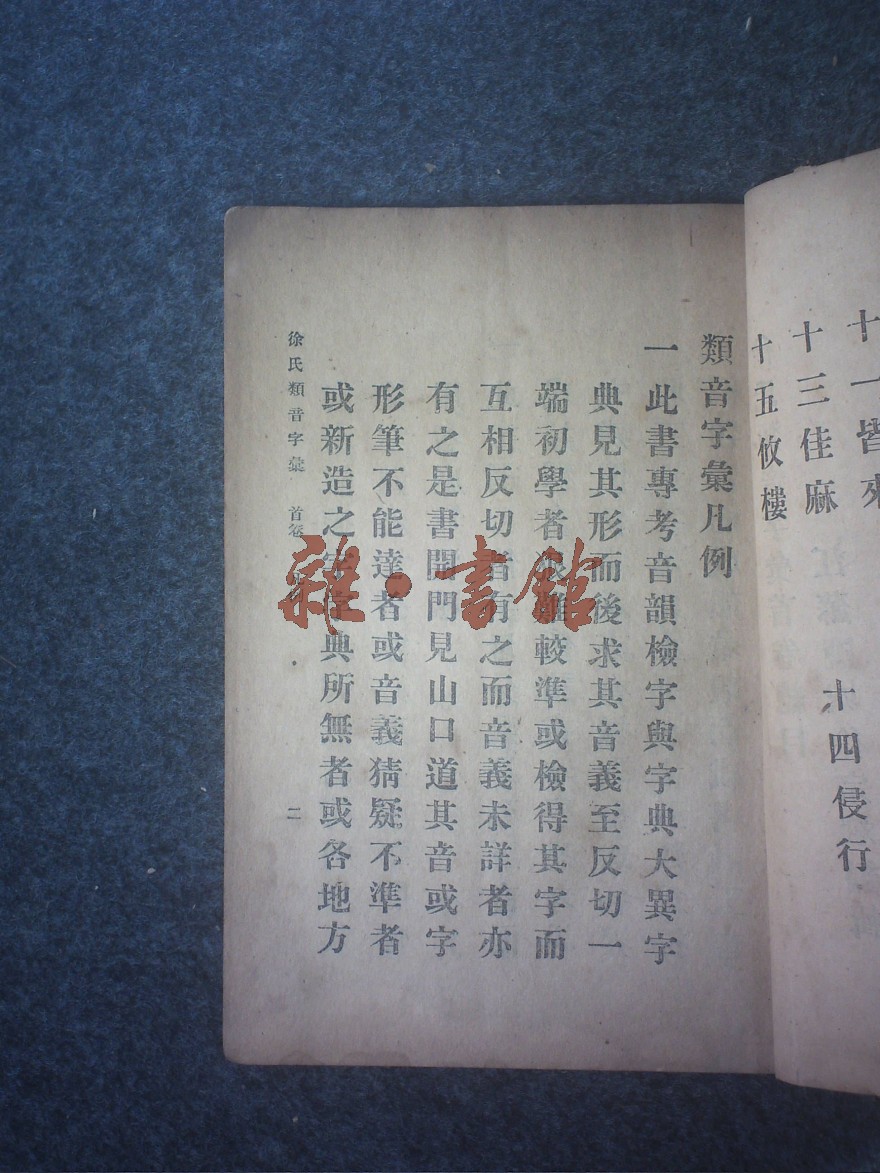 十一皆來
十三佳麻
十四侵行
十五攸樓
類音字彙凡例
一此書專考音韻檢字與字典大異字
典見其形而後求其音義至反切一
端初學者很難較準或檢得其字而
互相反切者有之而音義未詳者亦
有之是書開門見山口道其音或字
形筆不能達者或音義猜疑不準者
或新造之字字典所無者或各地方
徐氏類音字彙 首卷
二
雜·書館